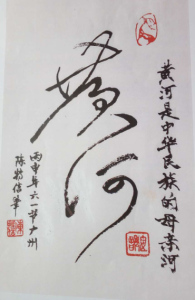 黄河是中华民族的母亲河
黄河
丙申年六一节广州
陈